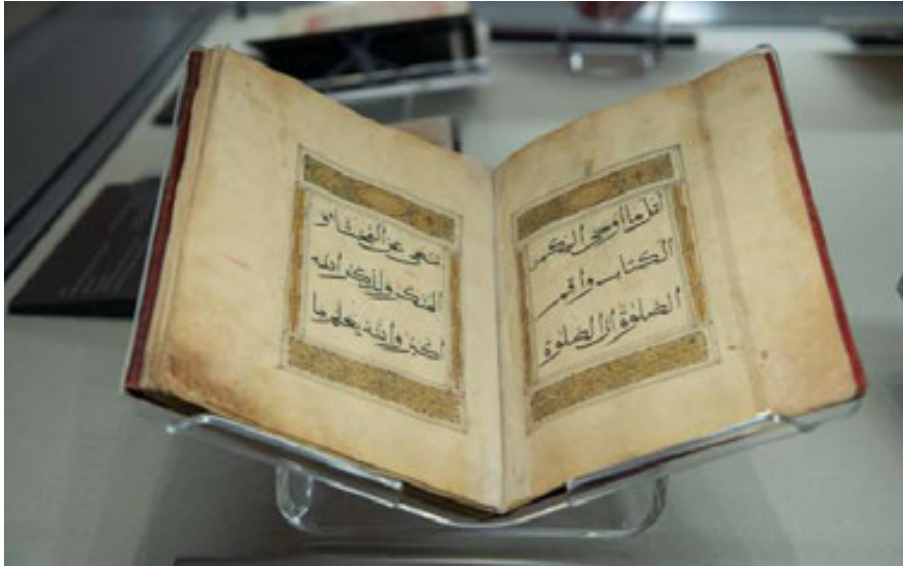 أتل ما أوحى إليك من
الكتاب وأقم
الصلوة إن الصلوة
تنهى عن الفحشاء و
المنكر ولذكر الله
أكبر والله يعلم ما